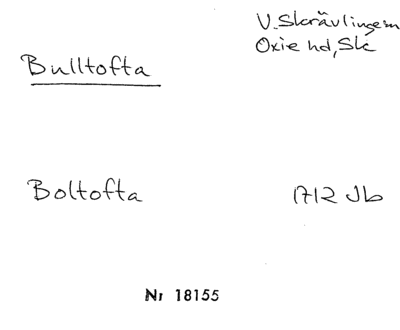 V. Skrävlinge sn
Oxie hd, Sk
Bulltofta
Boltofta 1712 Jb
Nr 18155